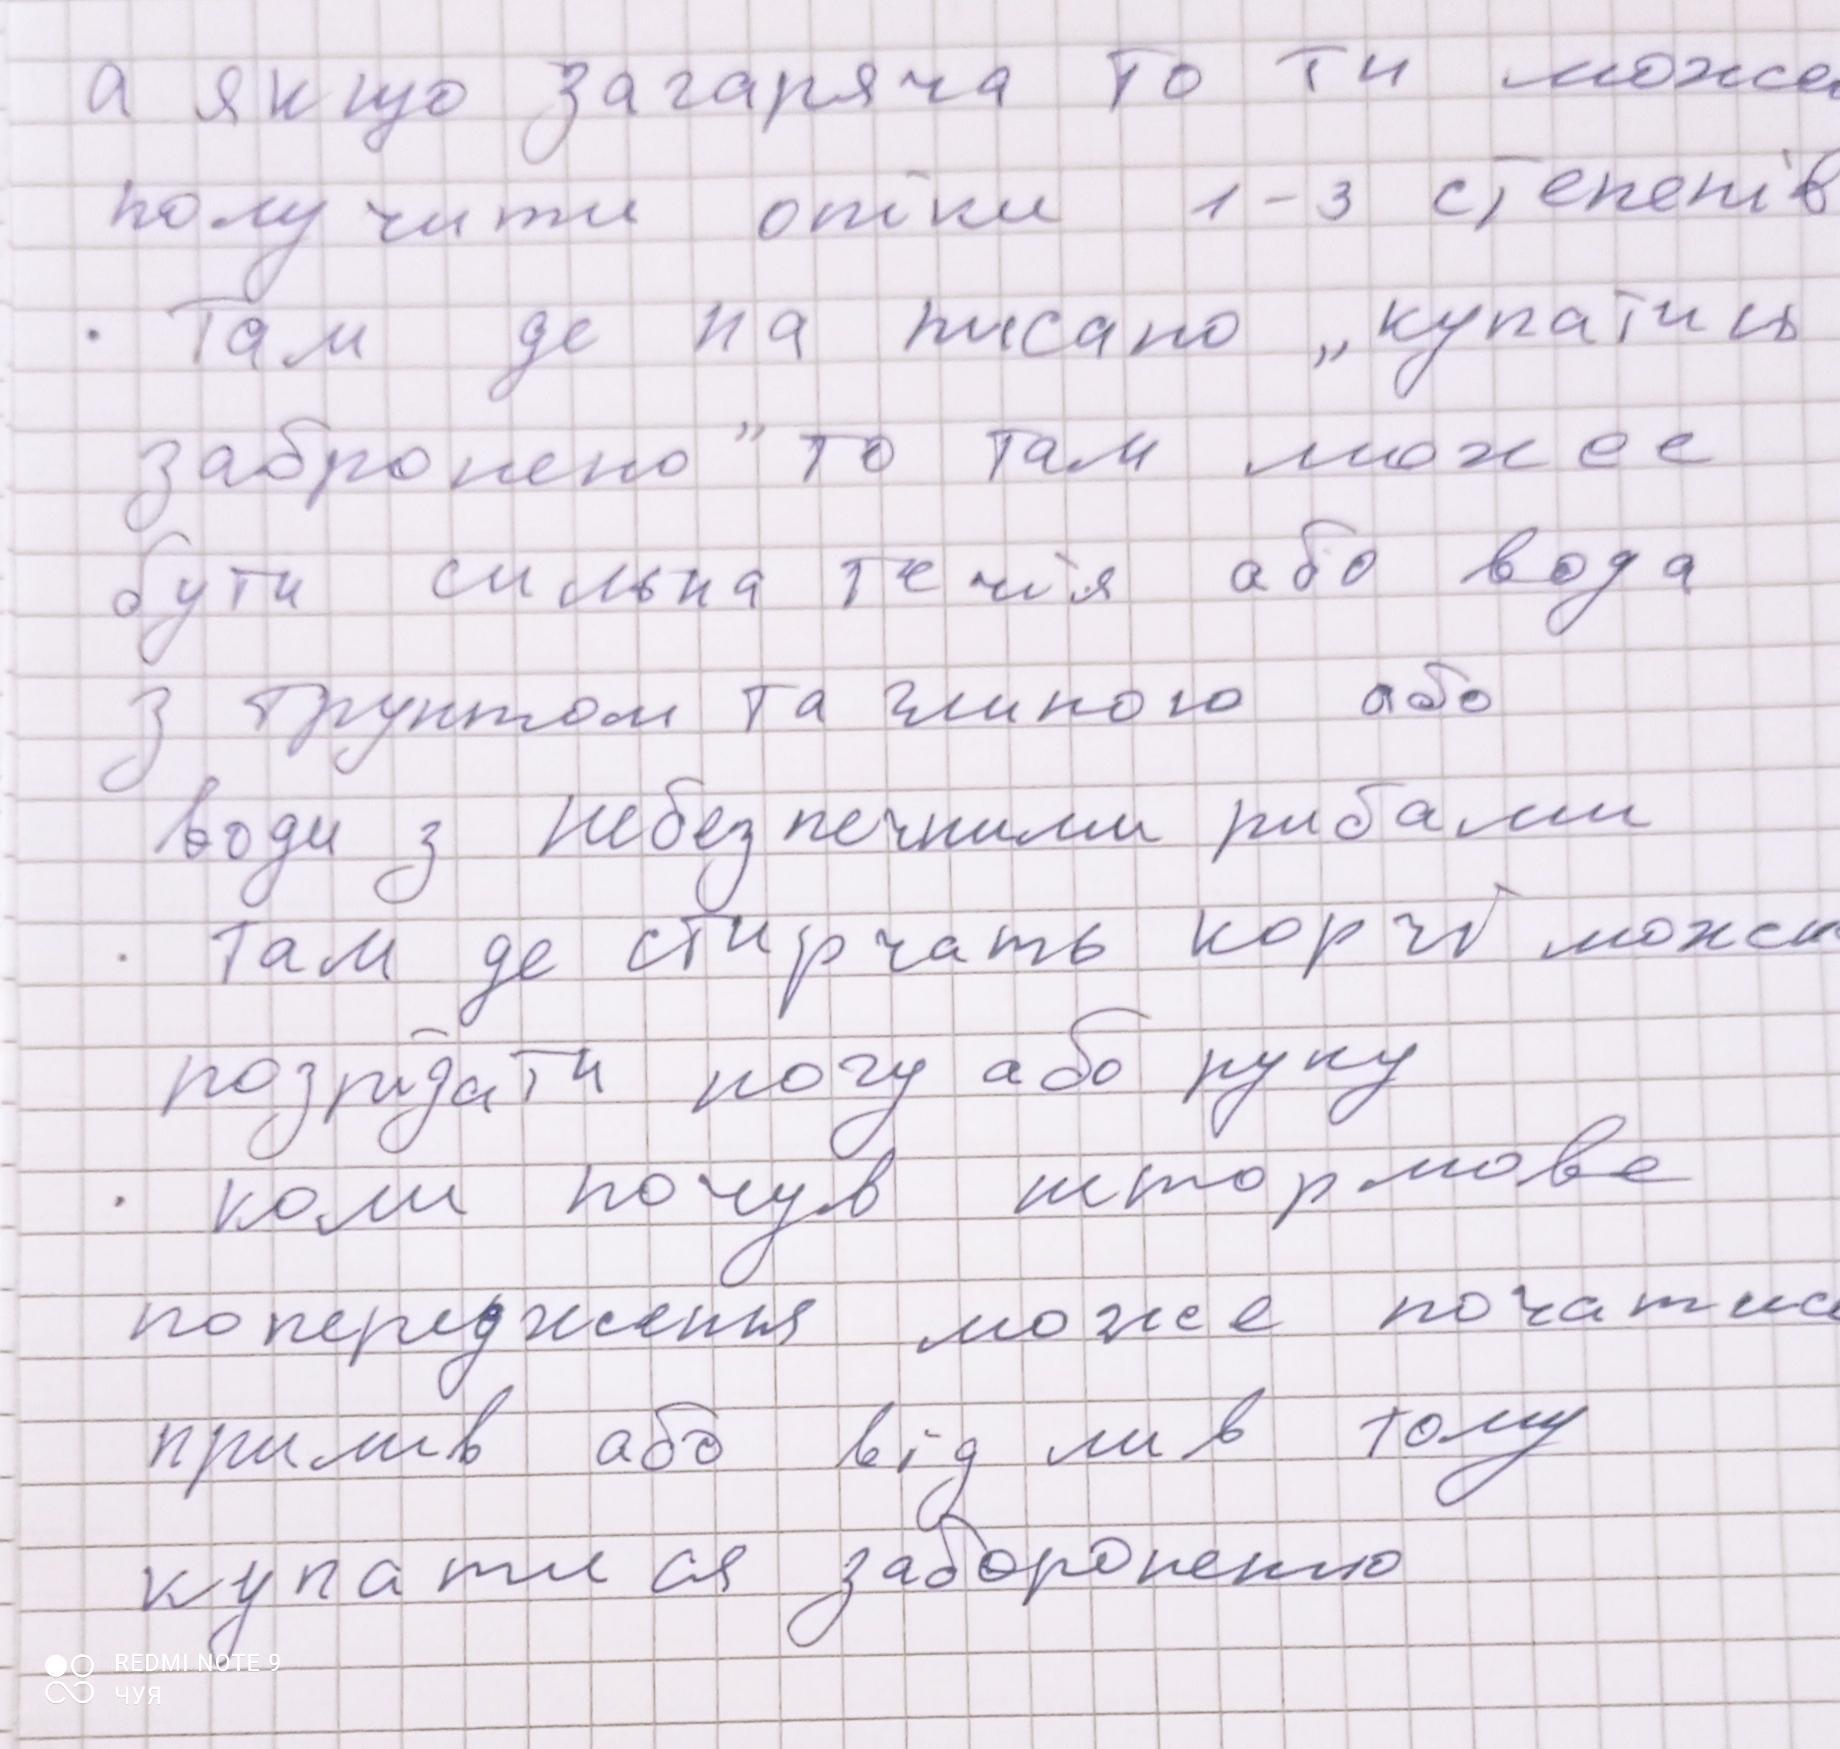 а якщо загаряча то ти може
получити опіки 1-3 степенів
· Там де на писано „купатись
забронено" то тамможее
бути сильна течія або вода
з грунтом та глиною або
води з небезпечними рибами
· Там де стирчать корчі можеш
розрізати ногу або руку
· коли почув штормове
попередження може початись
прилив або від лив тому
купати ся заборонено
REDMI NOTE 9
ЧУЯ